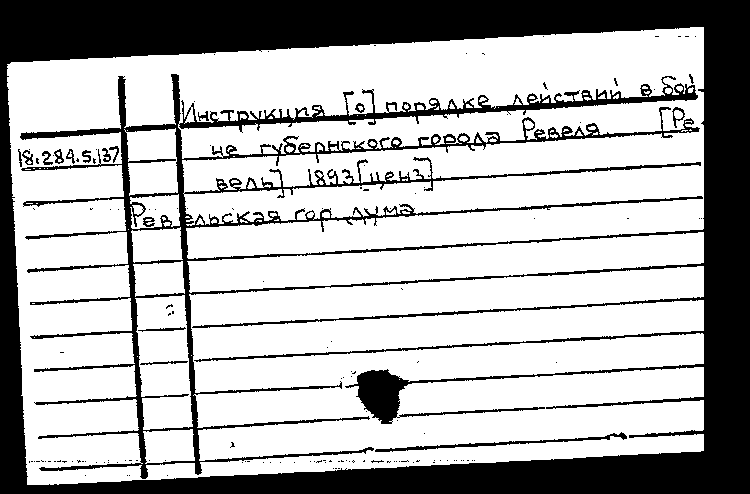 Инструкция [о] порядке действий в бой-
18.284.5.137
не губернского города Ревеля [Ре
вель], 1893 [ценз]
Ревельская гор дума